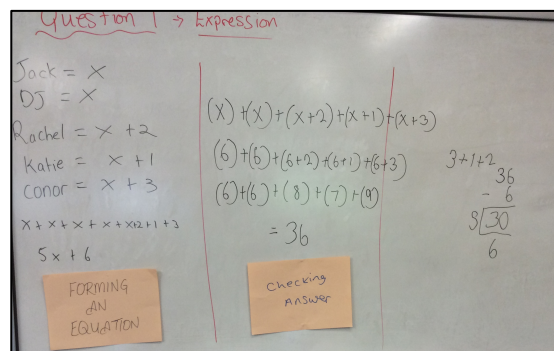 Question 1 → Expression
Jack = x
DJ = x
Rachel = x + 2
Katie = x + 1
Conor = x + 3
x + x + x + x + x+2 + 1 + 3
5x + 6
FORMING
AN
EQUATION
(x) + (x) + (x+2) + (x+1) + (x+3)
(6) + (6) + (6+2) + (6+1) + (6+3)
(6) + (6) + (8) + (7) + (9)
= 36
Checking
Answer
3+1+2
36
- 6
30
6